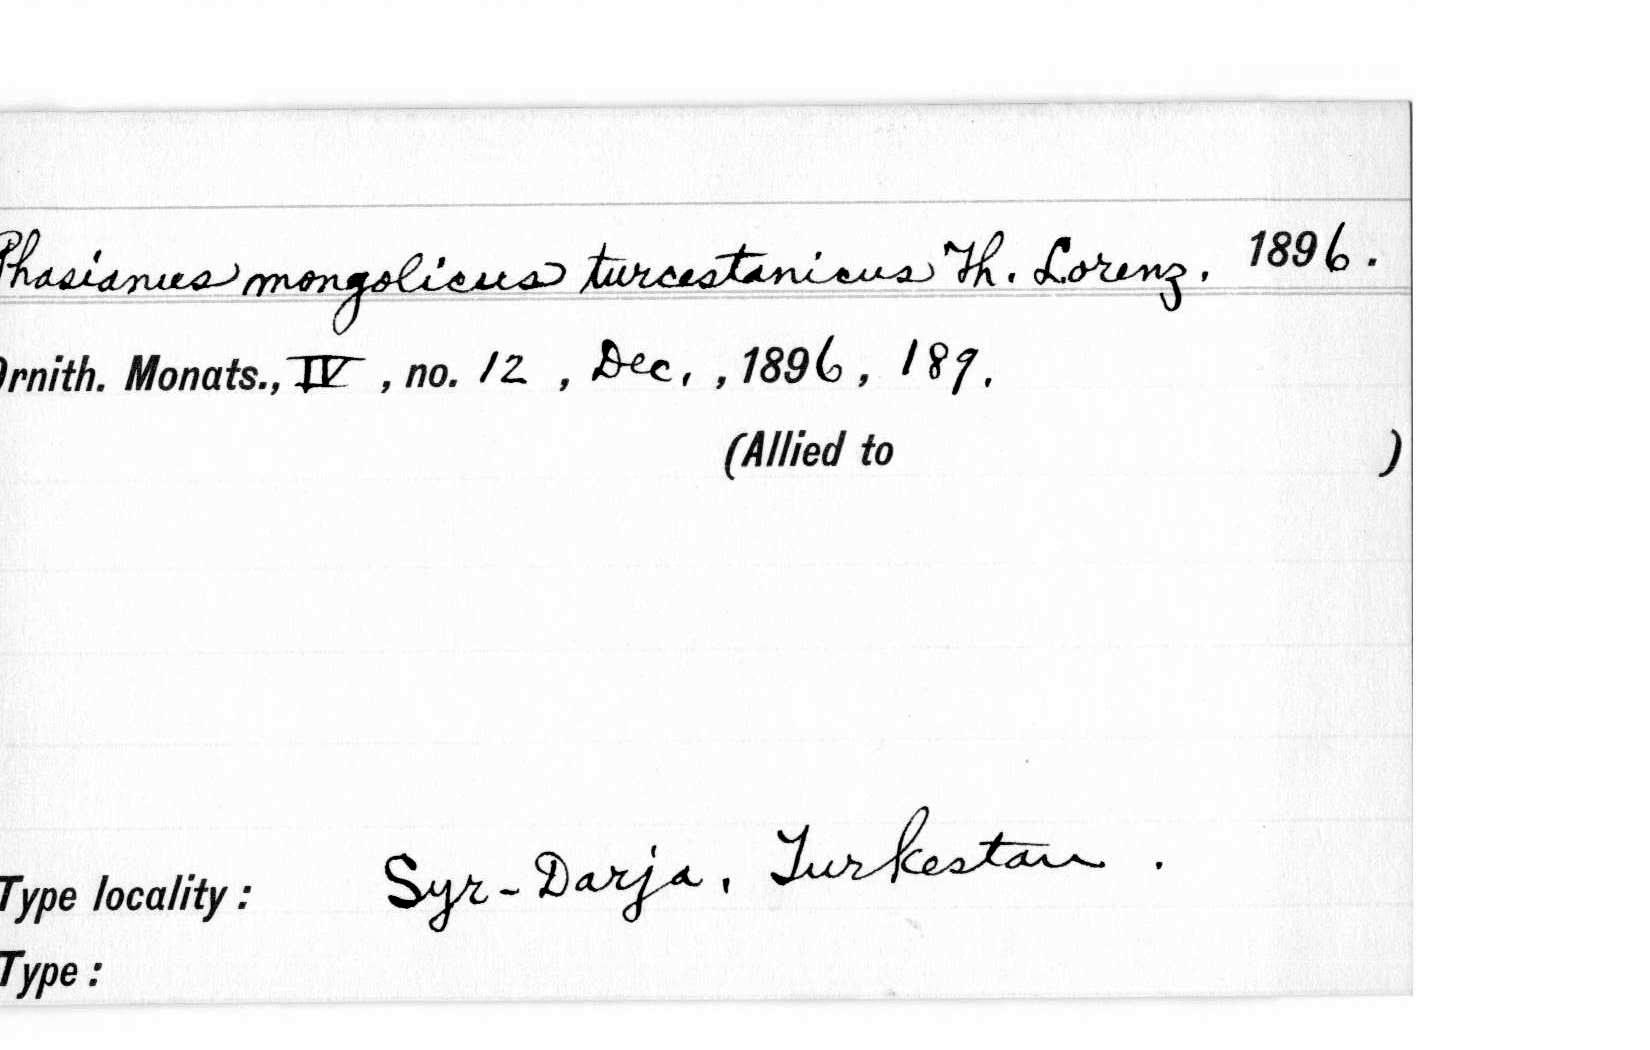 Phasianus mongolicus turcestanicus Th. Lorenz. 1896.
Ornith. Monats., IV, no. 12, Dec., , 1896, 189.
(Allied to )
Type locality: Syr-Darja, Turkestan.
Type: